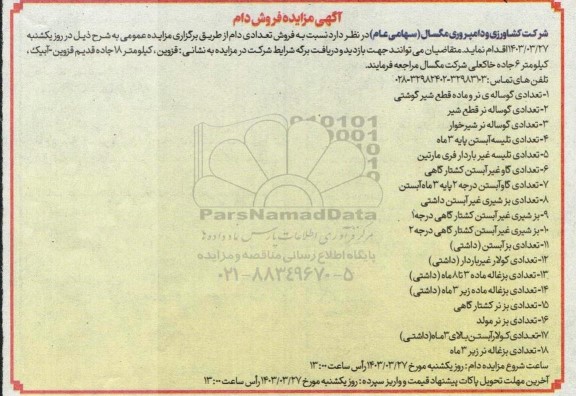 آگهی مزایده فروش دام
شرکت کشاورزی و دامپروری مگسال (سهامی عام) در نظر دارد نسبت به فروش تعدادی دام از طریق برگزاری مزایده عمومی به شرح ذیل در روز یکشنبه
۱۴۰۳/۰۳/۲۷ اقدام نماید. متقاضیان می توانند جهت بازدید و دریافت برگه شرایط شرکت در مزایده به نشانی: قزوین، کیلومتر ۱۸ جاده قدیم قزوین-آبیک،
کیلومتر ۶ جاده خاکعلی شرکت مگسال مراجعه فرمایند.
تلفن های تماس: ۳۲۹۸۳۱۰۳-۳۲۹۸۲۴۰۲-۰۲۸
۱-تعدادی گوساله ی نر و ماده قطع شیر گوشتی
۲-تعدادی گوساله نر قطع شیر
۳-تعدادی گوساله نر شیرخوار
۴-تعدادی تلیسه آبستن پایه ۳ ماه
۵-تعدادی تلیسه غیر باردار فری مارتین
۶-تعدادی گاو غیر آبستن کشتار گاهی
۷-تعدادی گاو آبستن درجه ۲ پایه ۳ ماه آبستن
۸-تعدادی بز شیری غیر آبستن داشتی
۹-بز شیری غیر آبستن کشتار گاهی درجه ۱
۱۰-بز شیری غیر آبستن کشتار گاهی درجه ۲
۱۱-تعدادی بز آبستن (داشتی)
۱۲-تعدادی کولار غیرباردار (داشتی)
۱۳-تعدادی بزغاله ماده ۳ تا ۸ ماه (داشتی)
۱۴-تعدادی بزغاله ماده زیر ۳ ماه (داشتی)
۱۵-تعدادی بز نر کشتار گاهی
۱۶-تعدادی بز نر مولد
۱۷-تعدادی کولار آبستن بالای ۳ ماه (داشتی)
۱۸-تعدادی بزغاله نر زیر ۳ ماه
ساعت شروع مزایده دام: روز یکشنبه مورخ ۱۴۰۳/۰۳/۲۷ رأس ساعت ۱۳:۰۰
آخرین مهلت تحویل پاکات پیشنهاد قیمت و واریز سپرده: روز یکشنبه مورخ ۱۴۰۳/۰۳/۲۷ رأس ساعت ۱۳:۰۰
ParsNamadData
مرکز فرآوری اطلاعات پارس نماد داده ها
پایگاه اطلاع رسانی مناقصه و مزایده
۰۲۱-۸۸۳۴۹۶۷۰-۵